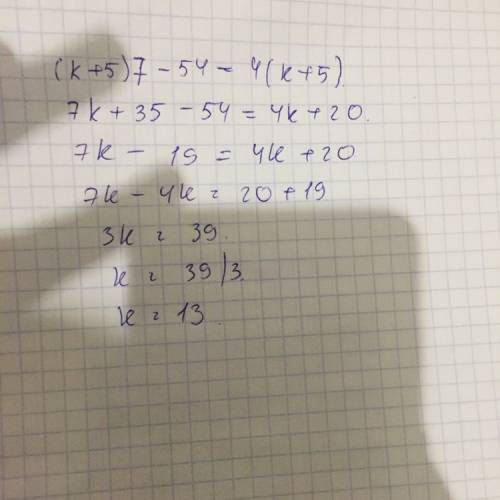 (k+5)7-54=4(k+5).
7k+35-54=4k+20.
7k-19=4k+20
7k-4k=20+19
3k=39.
k=39/3.
k=13.